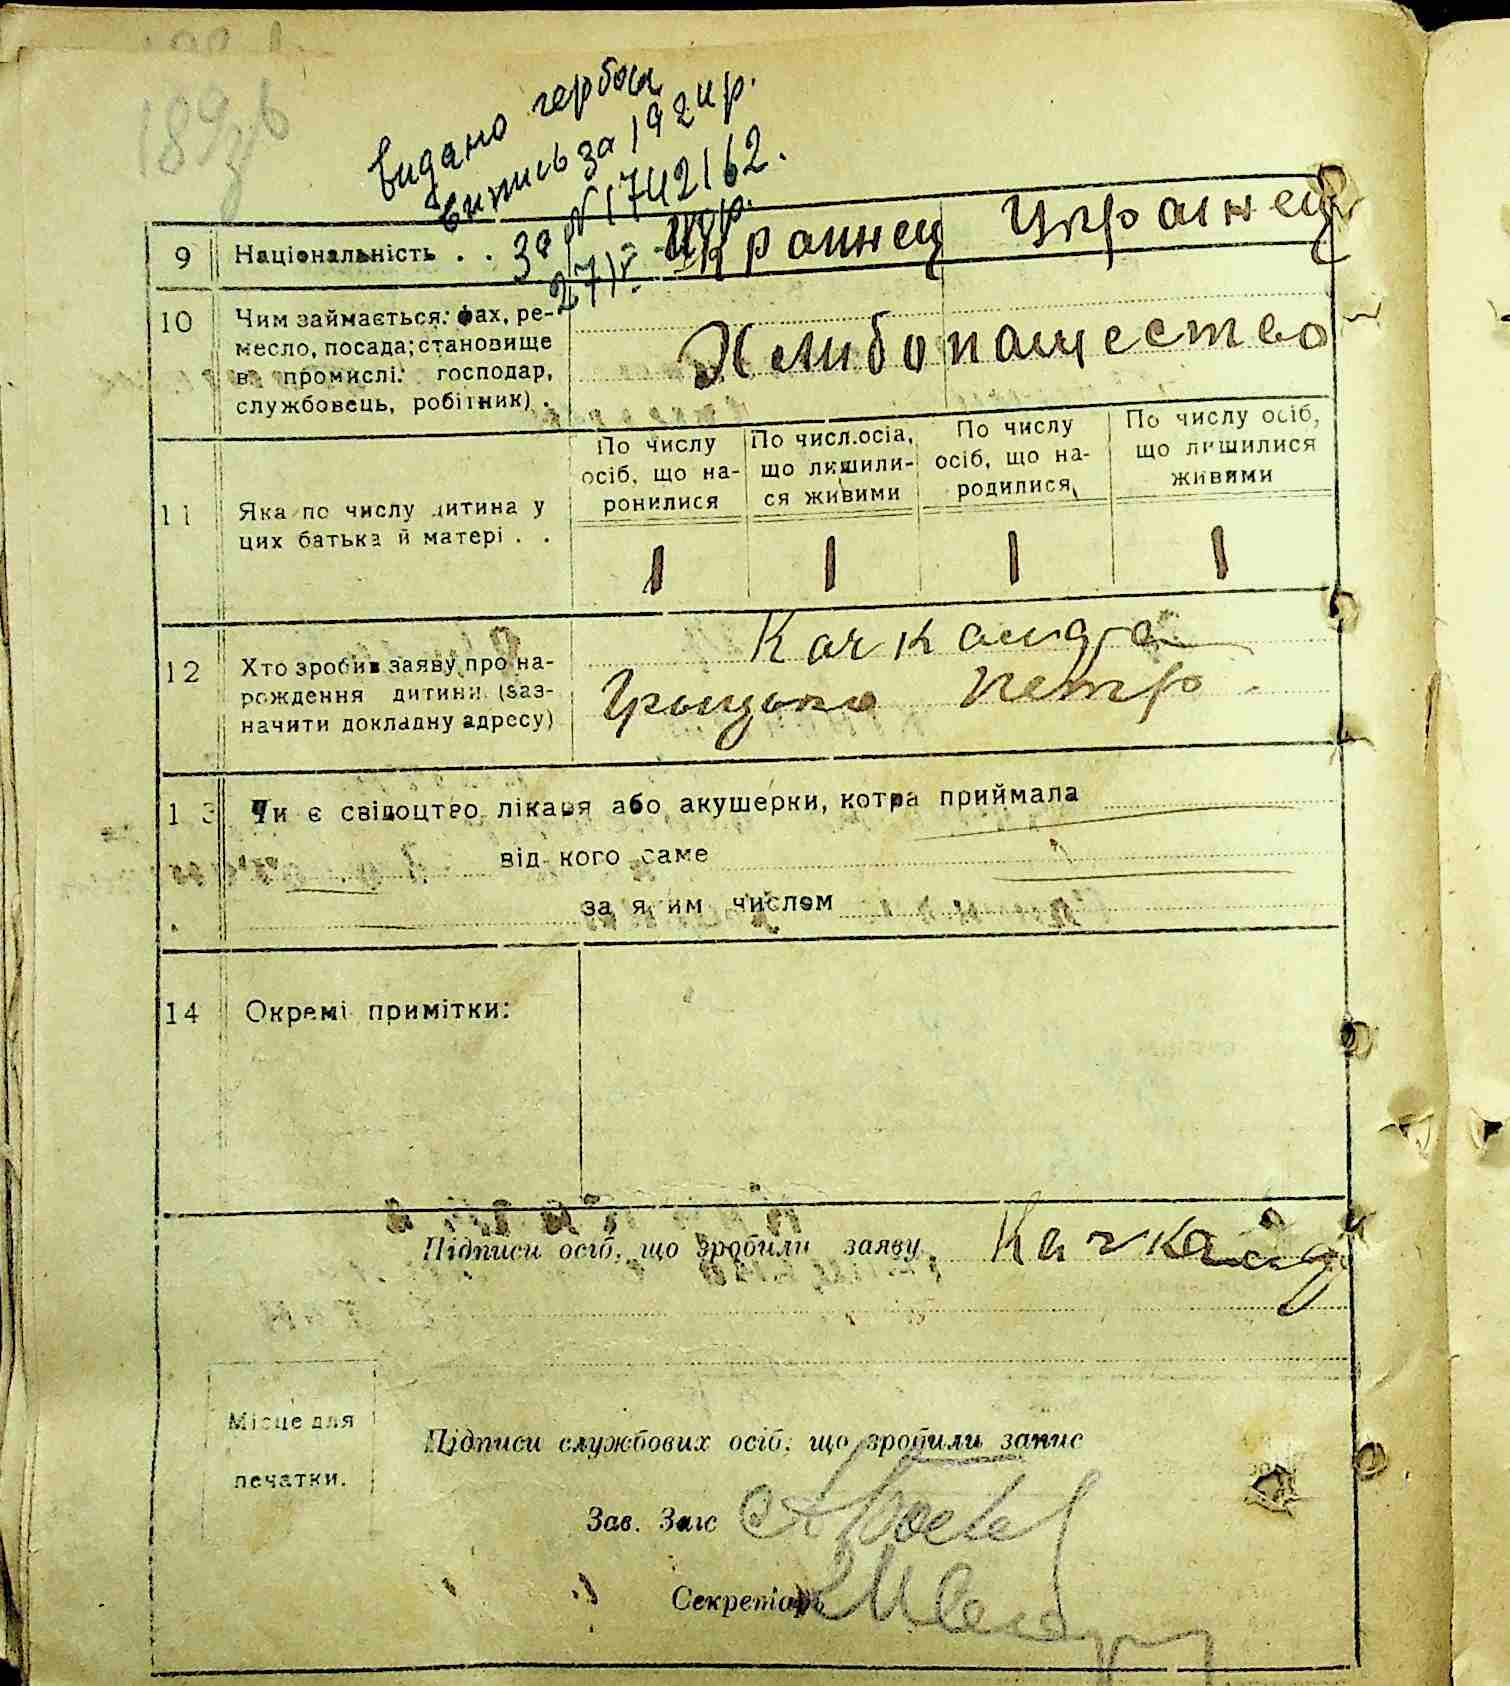 189зв
видано гербов
випись за 192 и р.
за № 1742162.
27/V
9 Національність . . Украинец Украинец
10 Чим займається: фах, ре-
месло, посада; становище
в промислі: господар,
службовець, робітник) .
Хлибопашество
По числу осіб, що на- ронилися
По числ.осіа, що лишили- ся живими
По числу осіб, що на- родилися
По числу осіб, що лишилися живими
11 Яка по числу дитина у
цих батька й матері . .
1 1 1 1
12 Хто зробив заяву про на-
рождення дитини (заз-
начити докладну адресу)
Качкайда
Грыцько Петр.
13 Чи є свідоцтво лікаря або акушерки, котра приймала
від кого саме
за яким числом
14 Окремі примітки:
Підписи осіб, що зробили заяву Качкайд
Місце для
печатки.
Підписи службових осіб, що зробили запис
Зав. Загс
Секретарь